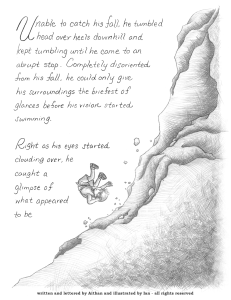 Unable to catch his fall, he tumbled
head over heels downhill and
kept tumbling until he came to an
abrupt stop. Completely disoriented
from his fall, he could only give
his surroundings the briefest of
glances before his vision started
swimming.
Right as his eyes started
clouding over, he
caught a
glimpse of
what appeared
to be
written and lettered by Aithan and illustrated by Ian - all rights reserved